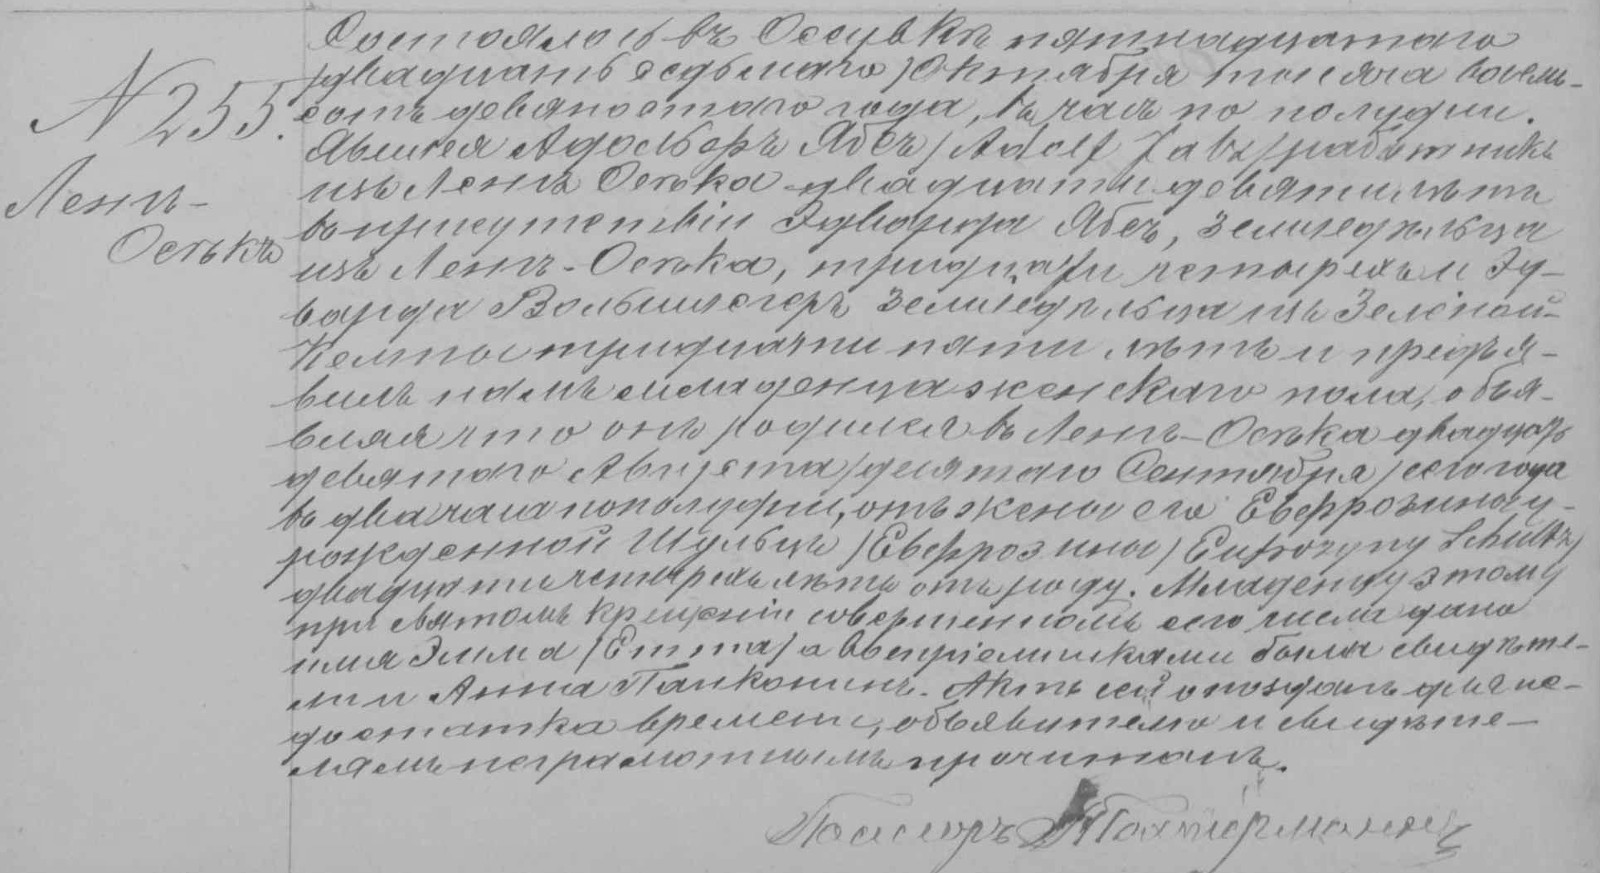 № 255.
Ленъ-
Оська
Состоялось въ Оссувкѣ пятнадцатаго
/двадцать седьмаго/ Октября тысяча восемь-
сотъ девяностаго года, въ часъ по полудни.
Явился Адольфъ Ябсъ /Adolf Jabs/ работникъ
изъ Ленъ Оська двадцати девяти лѣтъ
въ присутствіи Эдварда Ябсъ, земледѣльца
изъ Ленъ-Оська, тридцати четырехъ и Эд-
варда Вольшлегеръ земледѣльца изъ Зеленой-
Кемпы тридцати пяти лѣтъ и предъя-
вилъ намъ младенца женскаго пола, объя-
вляя что онъ родился въ Ленъ-Оська двадцать
девятаго Августа /десятаго Сентября/ сего года
въ два часа пополудни, отъ жены его Евфрозины у-
рожденной Шульцъ /Евфрозины/ Eufrozyny Schultz/
двадцати четырехъ лѣтъ отъ роду. Младенцу этому
при святомъ крещеніи совершенномъ сего числа дано
имя Эмма /Emma/ а воспріемниками были свидѣте-
ли и Анна Панконинъ. Актъ сей опозданъ для не-
достатка времени, объявителю и свидѣте-
лямъ неграмотнымъ прочитанъ.
Пасторъ